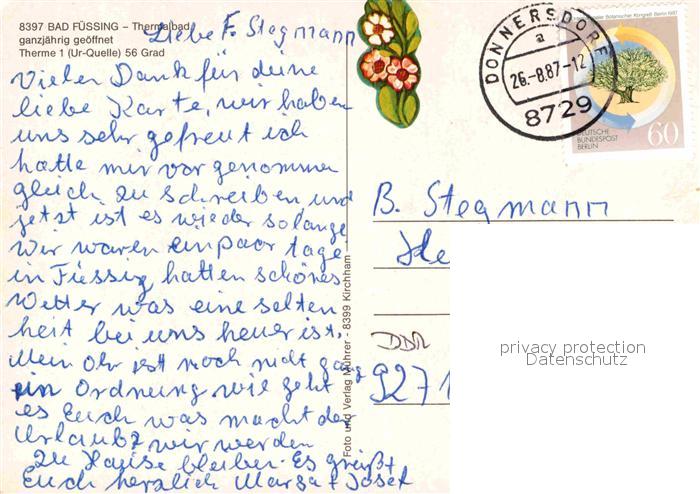 8397 BAD FÜSSING – Thermalbad
ganzjährig geöffnet
Therme 1 (Ur-Quelle) 56 Grad
Liebe F. Stegmann
Vielen Dank für deine
liebe Karte, wir haben
uns sehr gefreut ich
hatte mir vor genommen
gleich zu schreiben und
jetzt ist es wieder solange
Wir waren ein paar tage
in Füssing, hatten schönes
Wetter was eine selten
heit bei uns heuer ist.
Mein Ohr ist noch nicht ganz
in Ordnung wie geht
es Euch was macht der
Urlaub? wir werden
zu Hause bleiben. Es grüßt
Euch herzlich Josef
Foto und Verlag Mührer - 8399 Kirchham
DONNERSDORF
a
26.-8.87-12
8729
Botanischer Kongreß Berlin 1987
60
DEUTSCHE
BUNDESPOST
BERLIN
B. Stegmann
He
DDR
9271
privacy protection
Datenschutz